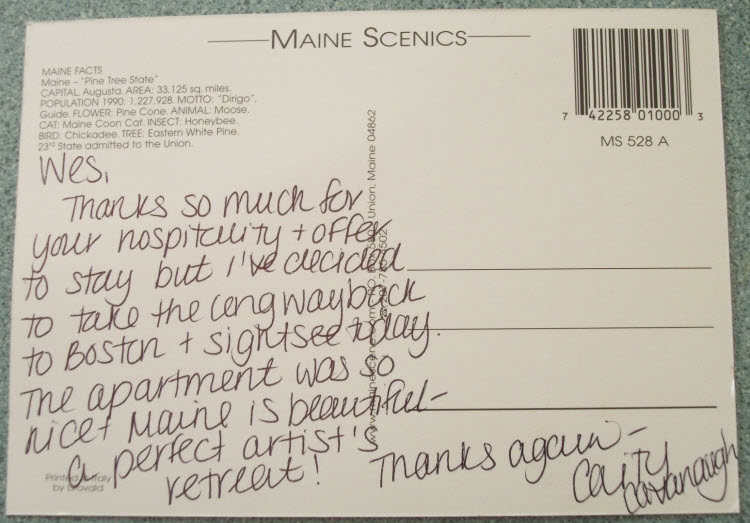 MAINE SCENICS
MAINE FACTS
Maine – "Pine Tree State"
CAPITAL, Augusta. AREA: 33,125 sq. miles.
POPULATION 1990: 1,227,928. MOTTO: "Dirigo",
Guide. FLOWER: Pine Cone. ANIMAL: Moose.
CAT: Maine Coon Cat. INSECT: Honeybee.
BIRD: Chickadee. TREE: Eastern White Pine.
23rd State admitted to the Union.
7 42258 01000 3
MS 528 A
Wes,
Thanks so much for
your hospitality + offer
to stay but I've decided
to take the long way back
to Boston + sightsee today.
The apartment was so
nice + Maine is beautiful –
a perfect artist's
retreat!
Thanks again –
Caity
Cavanaugh
Union, Maine 04862
Printed in Italy